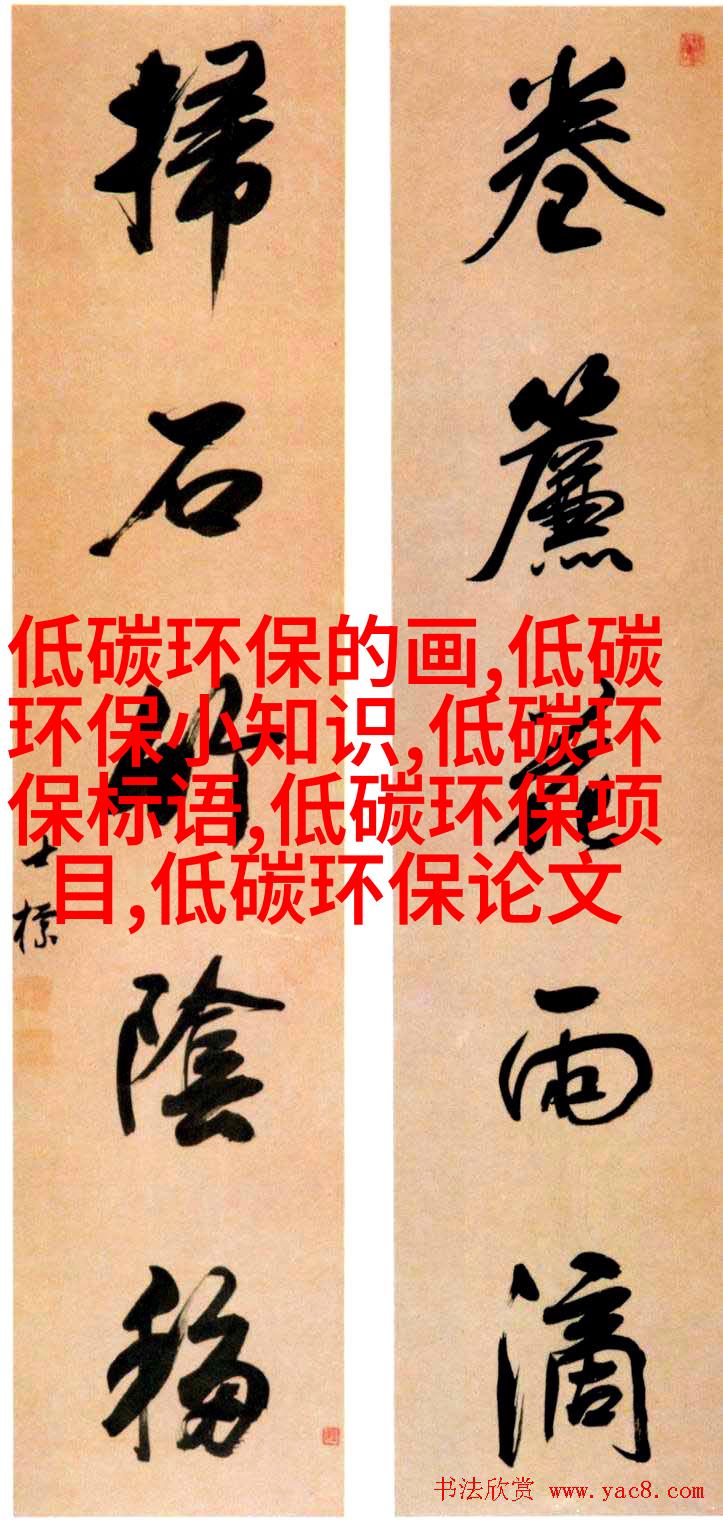 卷簾花雨滴
掃石竹陰移
士標
低碳环保的画,低碳
环保小知识,低碳环
保标语,低碳环保项
目,低碳环保论文
书法欣赏 www.yac8.com